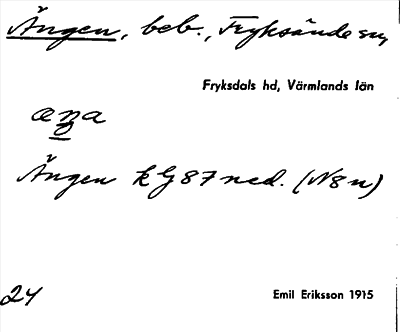 Ängen, beb., Fryksände sn
Fryksdals hd, Värmlands län
Ängen k G 87 ned. (N 8 n)
24
Emil Eriksson 1915